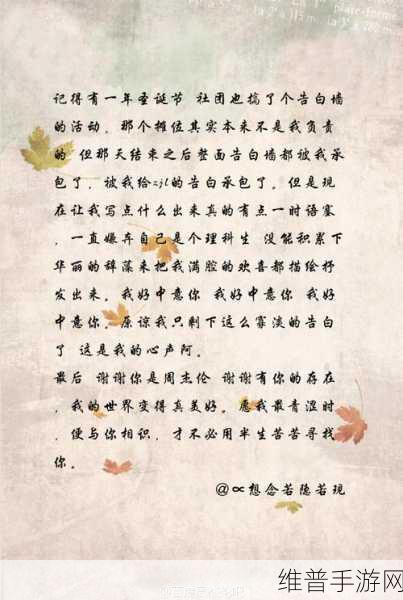 plate-forme
记得有一年圣诞节 社团也搞了个告白墙
的活动。那个摊位其实本来不是我负责
的 但那天结束之后整面告白墙都被我承
包了，被我给zjl的告白承包了。但是现
在让我写点什么出来真的有点一时语塞
，一直嫌弃自己是个理科生 没能积累下
华丽的辞藻来把我满腔的欢喜都描绘抒
发出来。我好中意你 我好中意你 我好
中意你。原谅我只剩下这么寡淡的告白
了 这是我的心声阿。
最后 谢谢你是周杰伦 谢谢有你的存在
，我的世界变得真美好。愿我最青涩时
，便与你相识，才不必用半生苦苦寻找
你。
@∝想念若隐若现
维普手游网